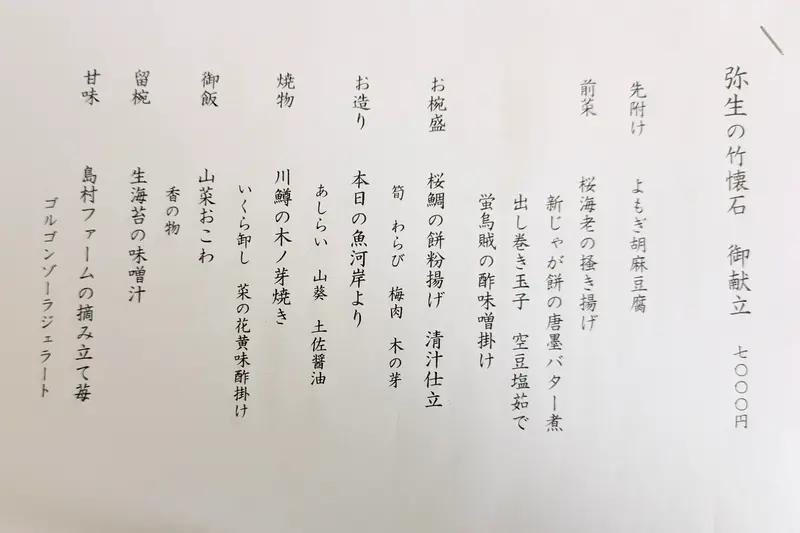 弥生の竹懐石　御献立　七〇〇〇円
先附け　よもぎ胡麻豆腐
前菜　桜海老の掻き揚げ
新じゃが餅の唐墨バター煮
出し巻き玉子　空豆塩茹で
蛍烏賊の酢味噌掛け
お椀盛　桜鯛の餅粉揚げ　清汁仕立
筍　わらび　梅肉　木の芽
お造り　本日の魚河岸より
あしらい　山葵　土佐醤油
焼物　川鱒の木ノ芽焼き
いくら卸し　菜の花黄味酢掛け
御飯　山菜おこわ
香の物
留椀　生海苔の味噌汁
甘味　島村ファームの摘み立て苺
ゴルゴンゾーラジェラート